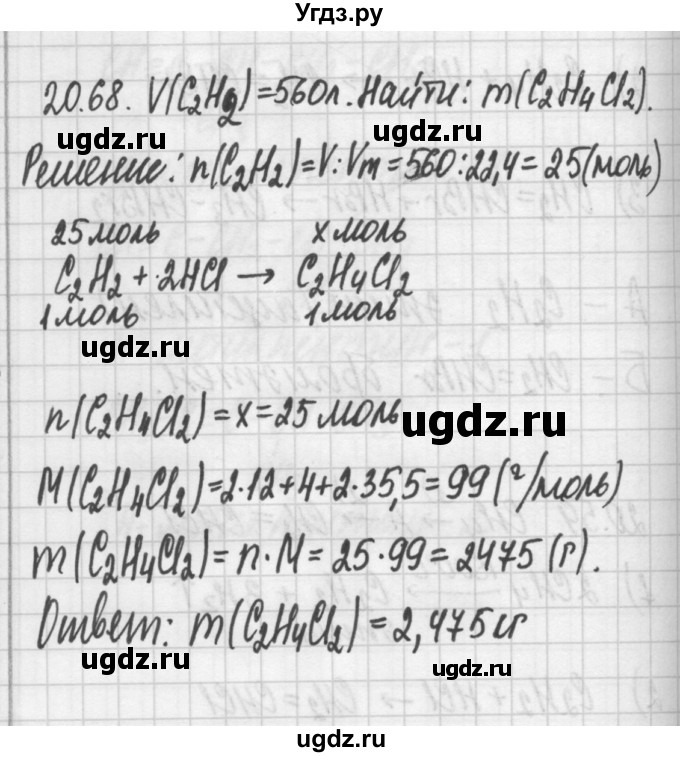 Угдз.ру
20.68. V(C₂H₂)=560л. Найти: m(C₂H₄Cl₂).
ugdz.ru ugdz.ru
Решение: n(C₂H₂)=V:Vm=560:22,4=25(моль)
25 моль x моль
C₂H₂ + 2HCl → C₂H₄Cl₂
1 моль 1 моль
ugdz.ru
n(C₂H₄Cl₂)=x=25 моль
ugdz.ru
M(C₂H₄Cl₂)=2·12+4+2·35,5=99(г/моль)
m(C₂H₄Cl₂)=n·M=25·99=2475(г).
Ответ: m(C₂H₄Cl₂)=2,475кг
ugdz.ru ugdz.ru
ugdz.ru